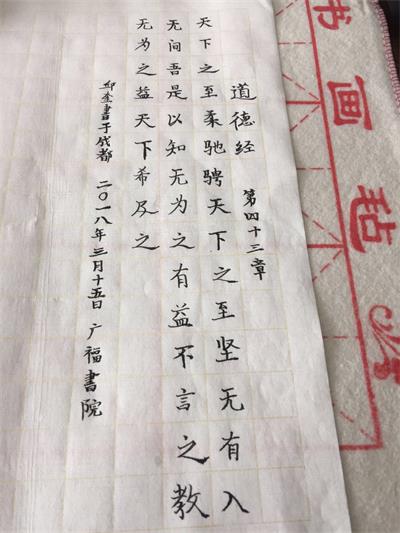 书画毡
道德经 第四十三章
天下之至柔驰骋天下之至坚无有入
无间吾是以知无为之有益不言之教
无为之益天下希及之
邱奎書于成都 二〇一八年三月十五日 广福書院